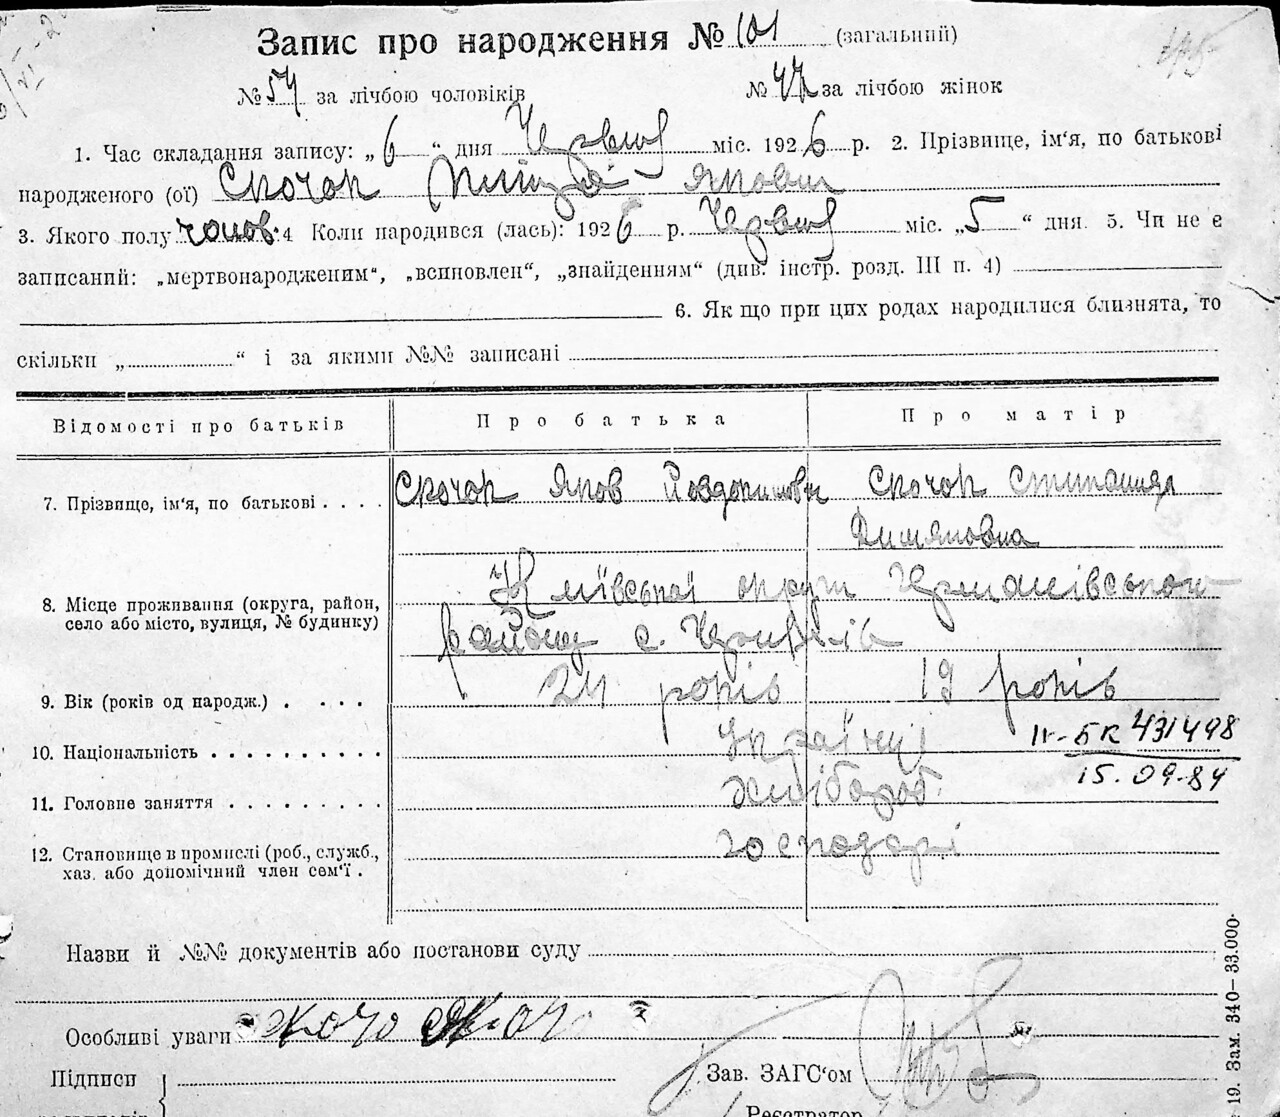 Запис про народження № 101 (загальний)
№ 54 за лічбою чоловіків № 47 за лічбою жінок
1. Час складання запису: „ 6 “ дня Червня міс. 1926 р. 2. Прізвище, ім‘я, по батькові
народженого (ої) Скочок Якович
3. Якого полу чолов. 4 Коли народився (лась): 1926 р. Червня міс. „ 5 “ дня. 5. Чи не є
записаний: „мертвонародженим“, „всиновлен“, „знайденням“ (див. інстр. розд. III п. 4)
6. Як що при цих родах народилися близнята, то
скільки „ “ і за якими №№ записані
Відомості про батьків Про батька Про матір
7. Прізвище, ім‘я, по батькові . . . . Скочок Яков Скочок
8. Місце проживання (округа, район, село або місто, вулиця, № будинку) Київської округи
району с.
9. Вік (років од народж.) . . . . 24 років 19 років
10. Національність . . . . . . . . . . Українці ІV-БК 431498
15.09.84
11. Головне заняття . . . . . . . . . Хлібороб
12. Становище в промислі (роб., служб., господарі
хаз. або допомічний член сем‘ї .
Назви й №№ документів або постанови суду
Особливі уваги
Підписи
Зав. ЗАГС‘ом
Реєстратор
19. Зам. 340—33.000.